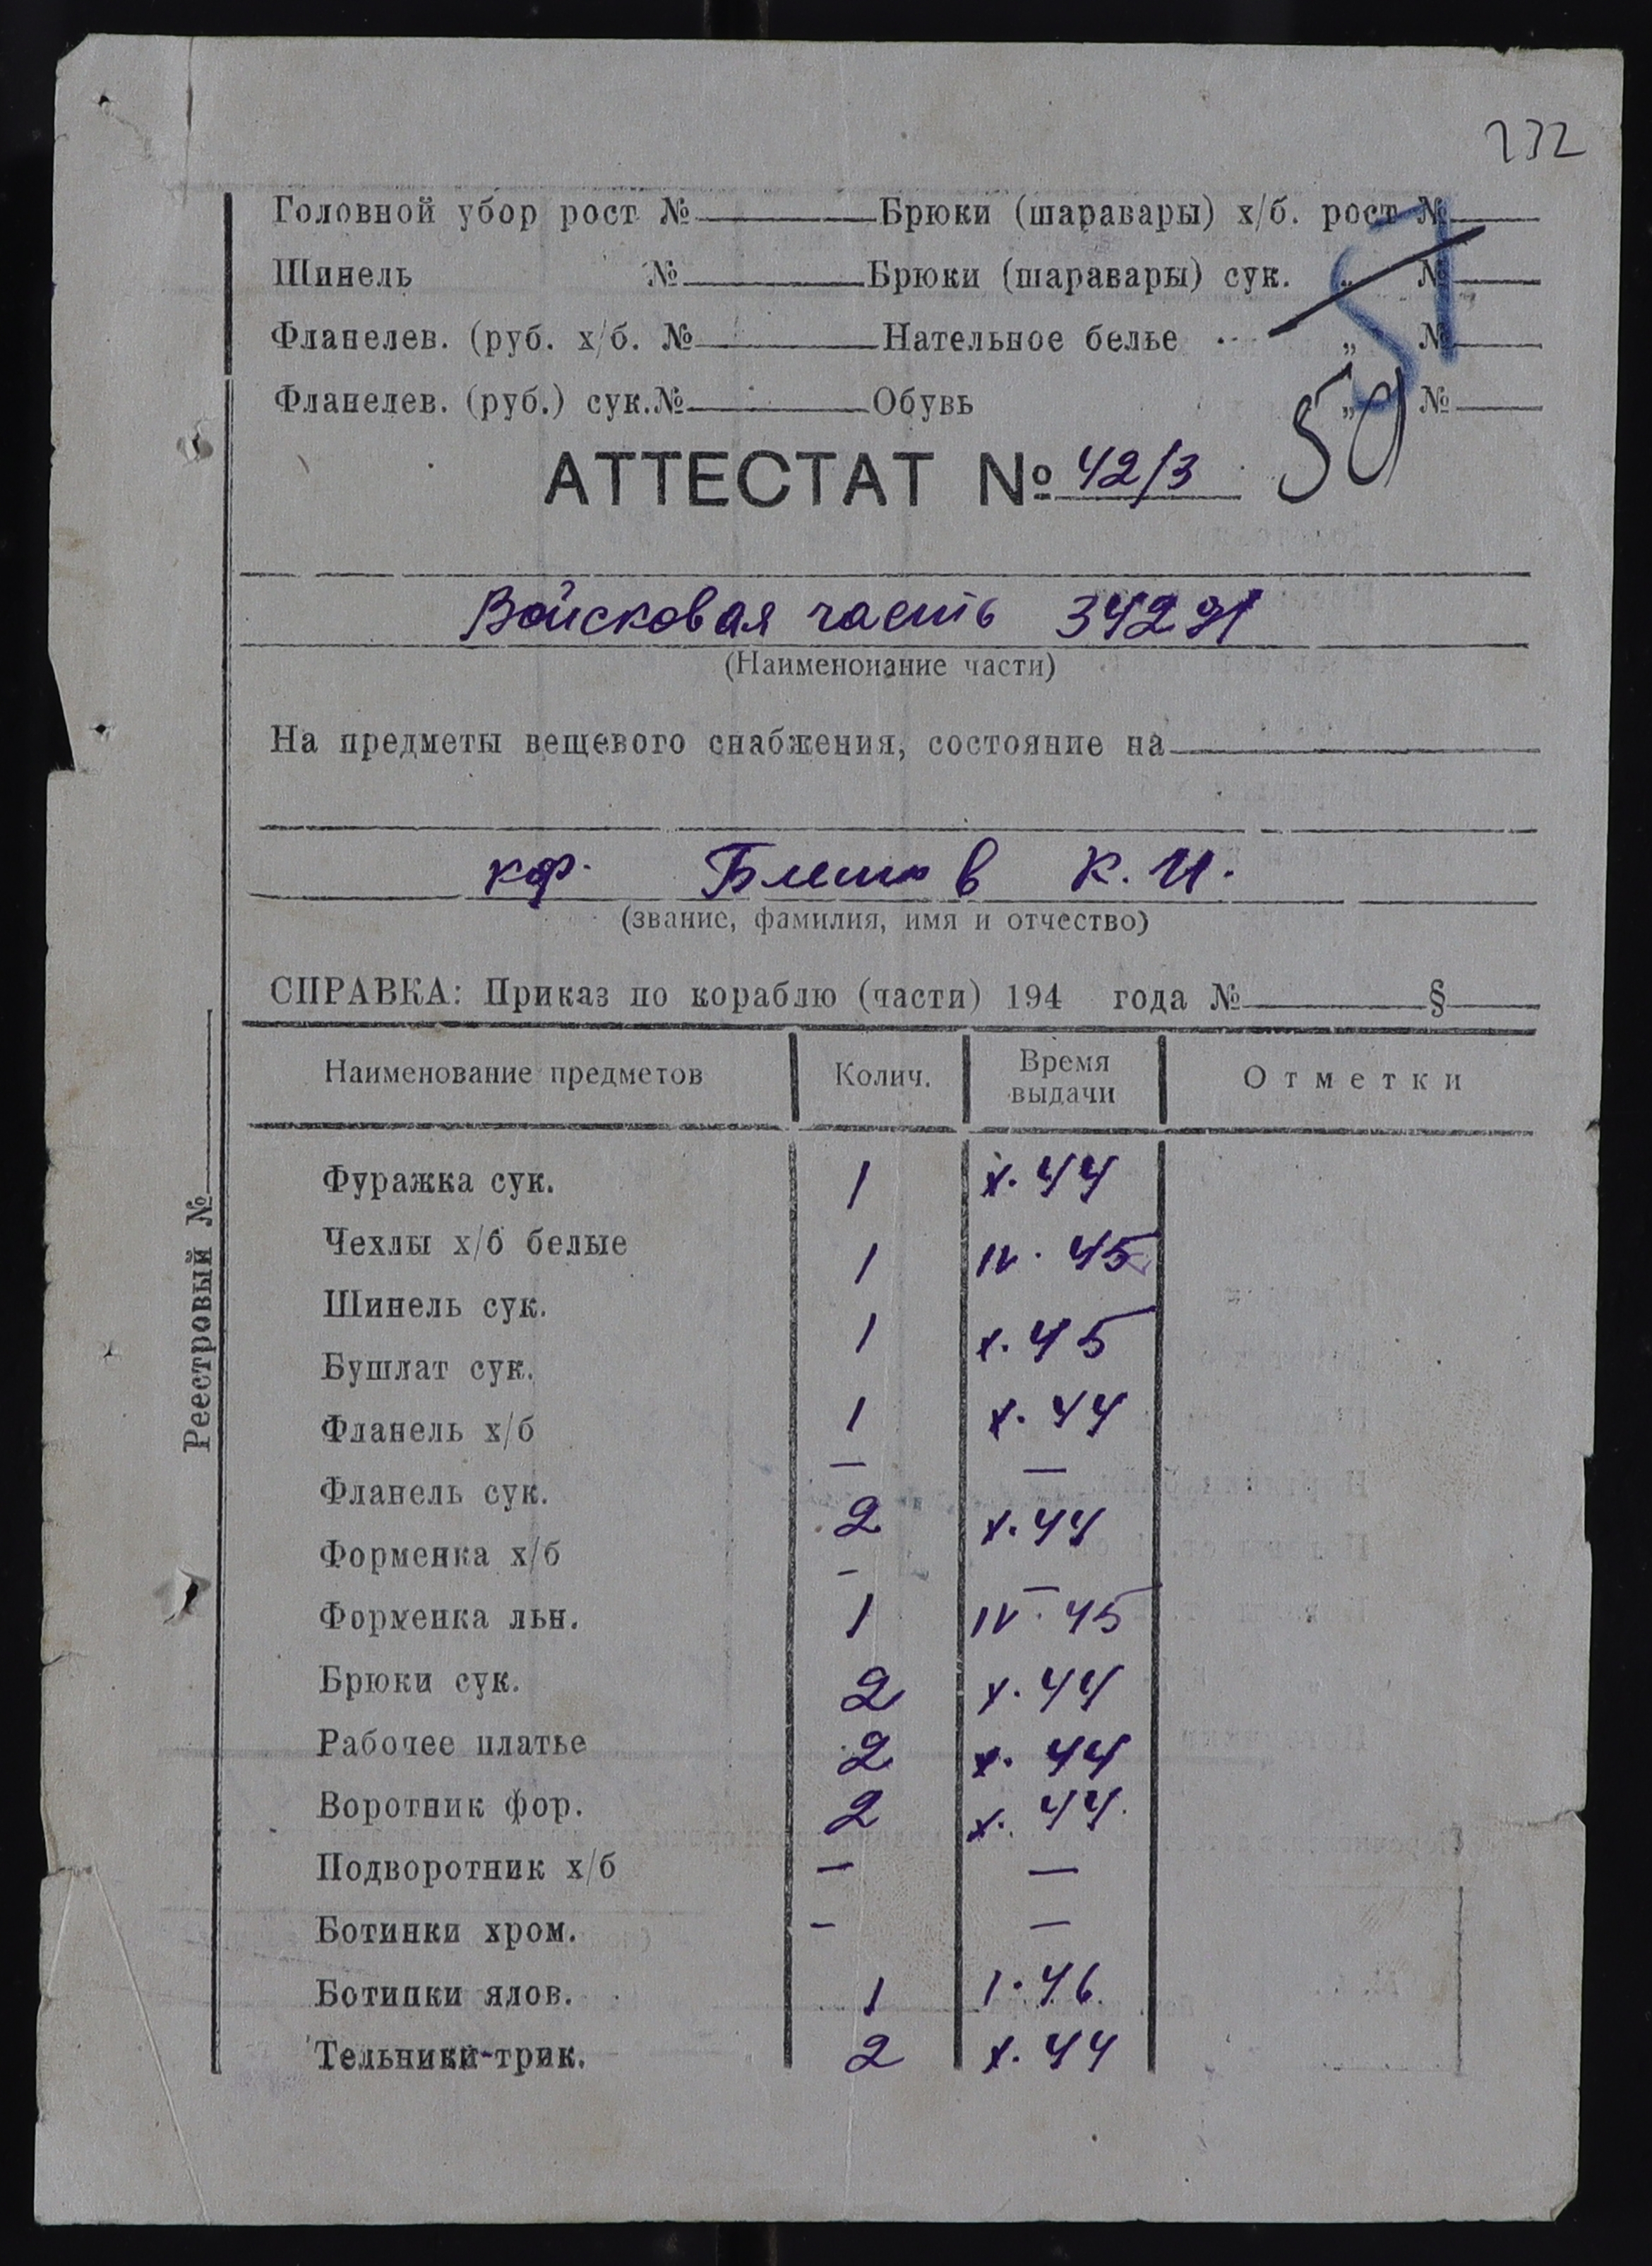 232
Головной убор рост № Брюки (шаравары) х/б. рост №
Шинель № Брюки (шаравары) сук. „ №
Фланелев. (руб. х/б. № Нательное белье „ №
Фланелев. (руб.) сук. № Обувь „ №
57
50
АТТЕСТАТ № 42/3
Войсковая часть 34291
(Наименонание части)
На предметы вещевого снабжения, состояние на
кф. К. И.
(звание, фамилия, имя и отчество)
СПРАВКА: Приказ по кораблю (части) 194 года № §
Реестровый №
Наименование предметов Колич. Время выдачи Отметки
Фуражка сук. 1 X. 44
Чехлы х/б белые 1 IV. 45
Шинель сук. 1 X. 45
Бушлат сук. 1 X. 44
Фланель х/б — —
Фланель сук. 2 X. 44
Форменка х/б — —
Форменка льн. 1 IV. 45
Брюки сук. 2 X. 44
Рабочее платье 2 X. 44
Воротник фор. 2 X. 44.
Подворотник х/б — —
Ботинки хром. — —
Ботинки ялов. 1 1. 46.
Тельники-трик. 2 X. 44